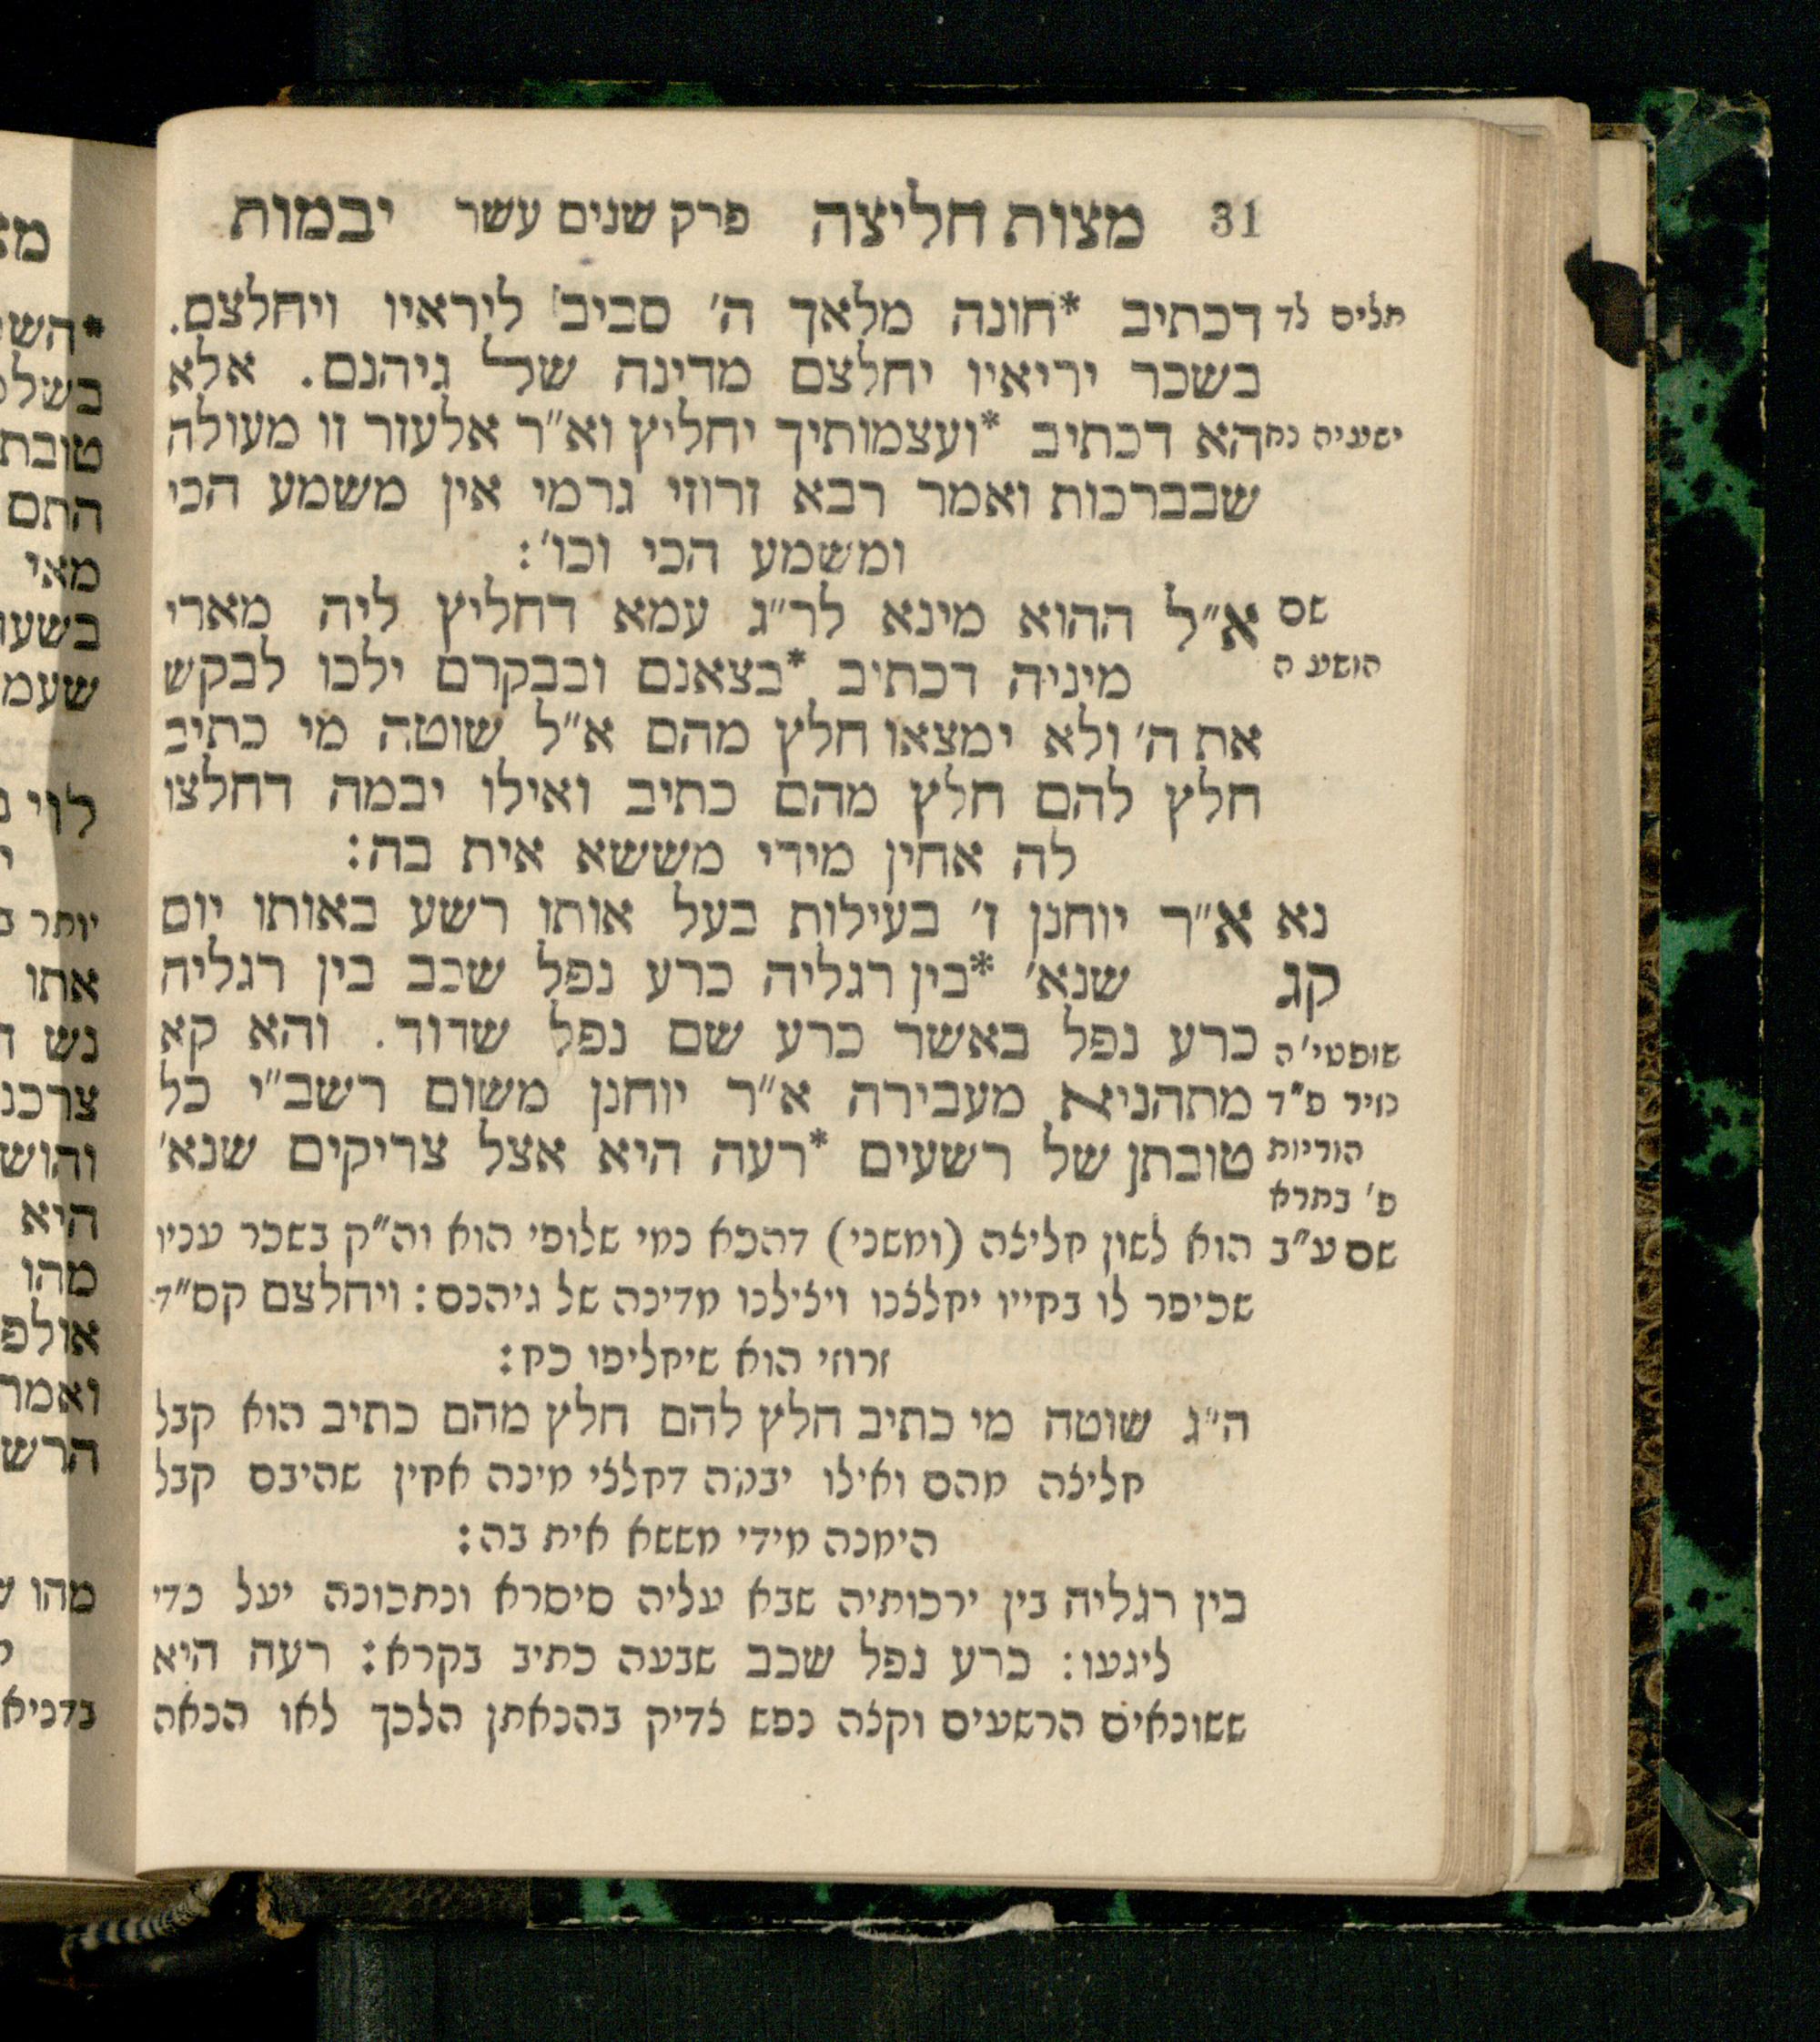 31 מצות חליצה פרק שנים עשר יבמות
תלים לד דכתיב *חונה מלאך ה' סביב ליראיו ויחלצם.
בשכר יריאיו יחלצם מדינה של גיהנם. אלא
ישעיה נח הא דכתיב *ועצמותיך יחליץ וא"ר אלעזר זו מעולה
שבברכות ואמר רבא זרוזי גרמי אין משמע הכי
ומשמע הכי וכו':
שם א"ל ההוא מינא לר"ג עמא דחליץ ליה מארי
הושע ה מיניה דכתיב *בצאנם ובבקרם ילכו לבקש
את ה' ולא ימצאו חלץ מהם א"ל שוטה מי כתיב
חלץ להם חלץ מהם כתיב ואילו יבמה דחלצו
לה אחין מידי מששא אית בה:
נא א"ר יוחנן ז' בעילות בעל אותו רשע באותו יום
קג שנא' *בין רגליה כרע נפל שכב בין רגליה
שופטי' ה כרע נפל באשר כרע שם נפל שדוד. והא קא
נזיר פ"ד מתהניא מעבירה א"ר יוחנן משום רשב"י כל
הוריות טובתן של רשעים *רעה היא אצל צדיקים שנא'
פ' בתרא
שם ע"ב הוא לשון חליצה (ומשני) דהכא נמי שלופי הוא וה"ק בשכר עניו
שכיפר לו בחייו יחלצנו ויצילנו מדינה של גיהנם: ויחלצם קס"ד
זרוזי הוא שיחליפו כח:
ה"ג שוטה מי כתיב חלץ להם חלץ מהם כתיב הוא קבל
חליצה מהם ואילו יבמה דחלצי מינה אחין שהיבם קבל
הימנה מידי מששא אית בה:
בין רגליה בין ירכותיה שבא עליה סיסרא ונתכונה יעל כדי
ליגעו: כרע נפל שכב שבעה כתיב בקרא: רעה היא
ששונאים הרשעים וקצה נפש צדיק בהנאתן הלכך לאו הנאה